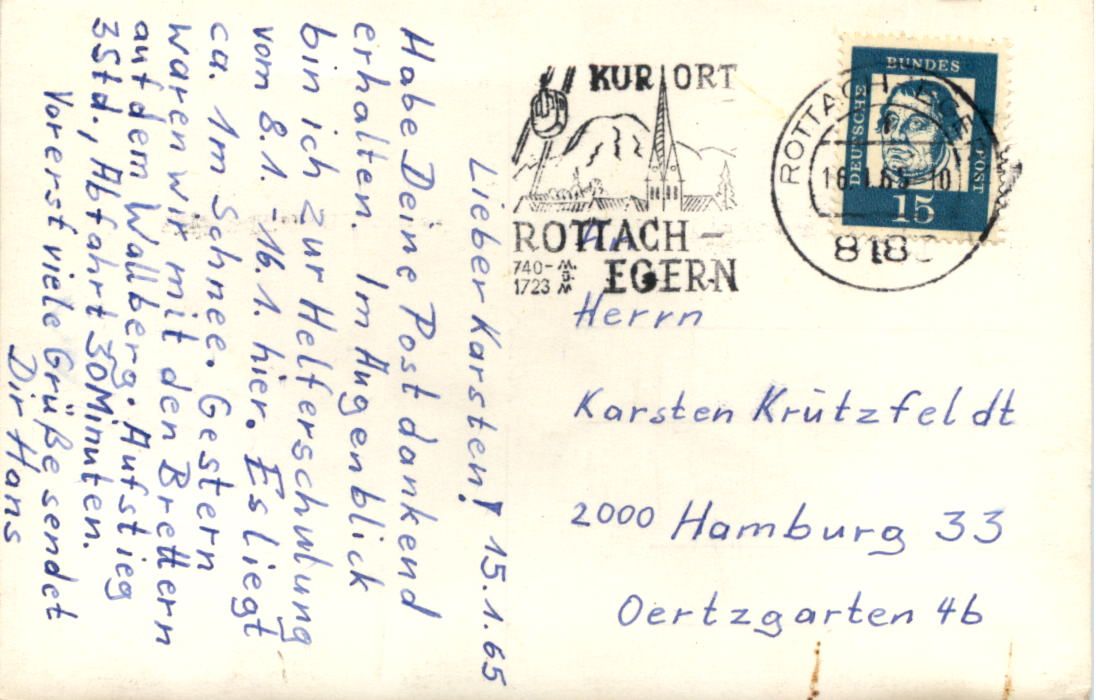 Lieber Karsten! 15.1.65
Habe Deine Post dankend
erhalten. Im Augenblick
bin ich zur Helferschulung
vom 8.1. - 16.1. hier. Es liegt
ca. 1m Schnee. Gestern
waren wir mit den Brettern
auf dem Wallberg. Aufstieg
3Std., Abfahrt 30Minuten.
Vorerst viele Grüße sendet
Dir Hans
KURORT
ROTTACH-
EGERN
740-
1723 M.
ü.
M
ROTTACH-EGE
16.1.65
818
BUNDES
DEUTSCHE
POST
15
Herrn
Karsten Krützfeldt
2000 Hamburg 33
Oertzgarten 4b